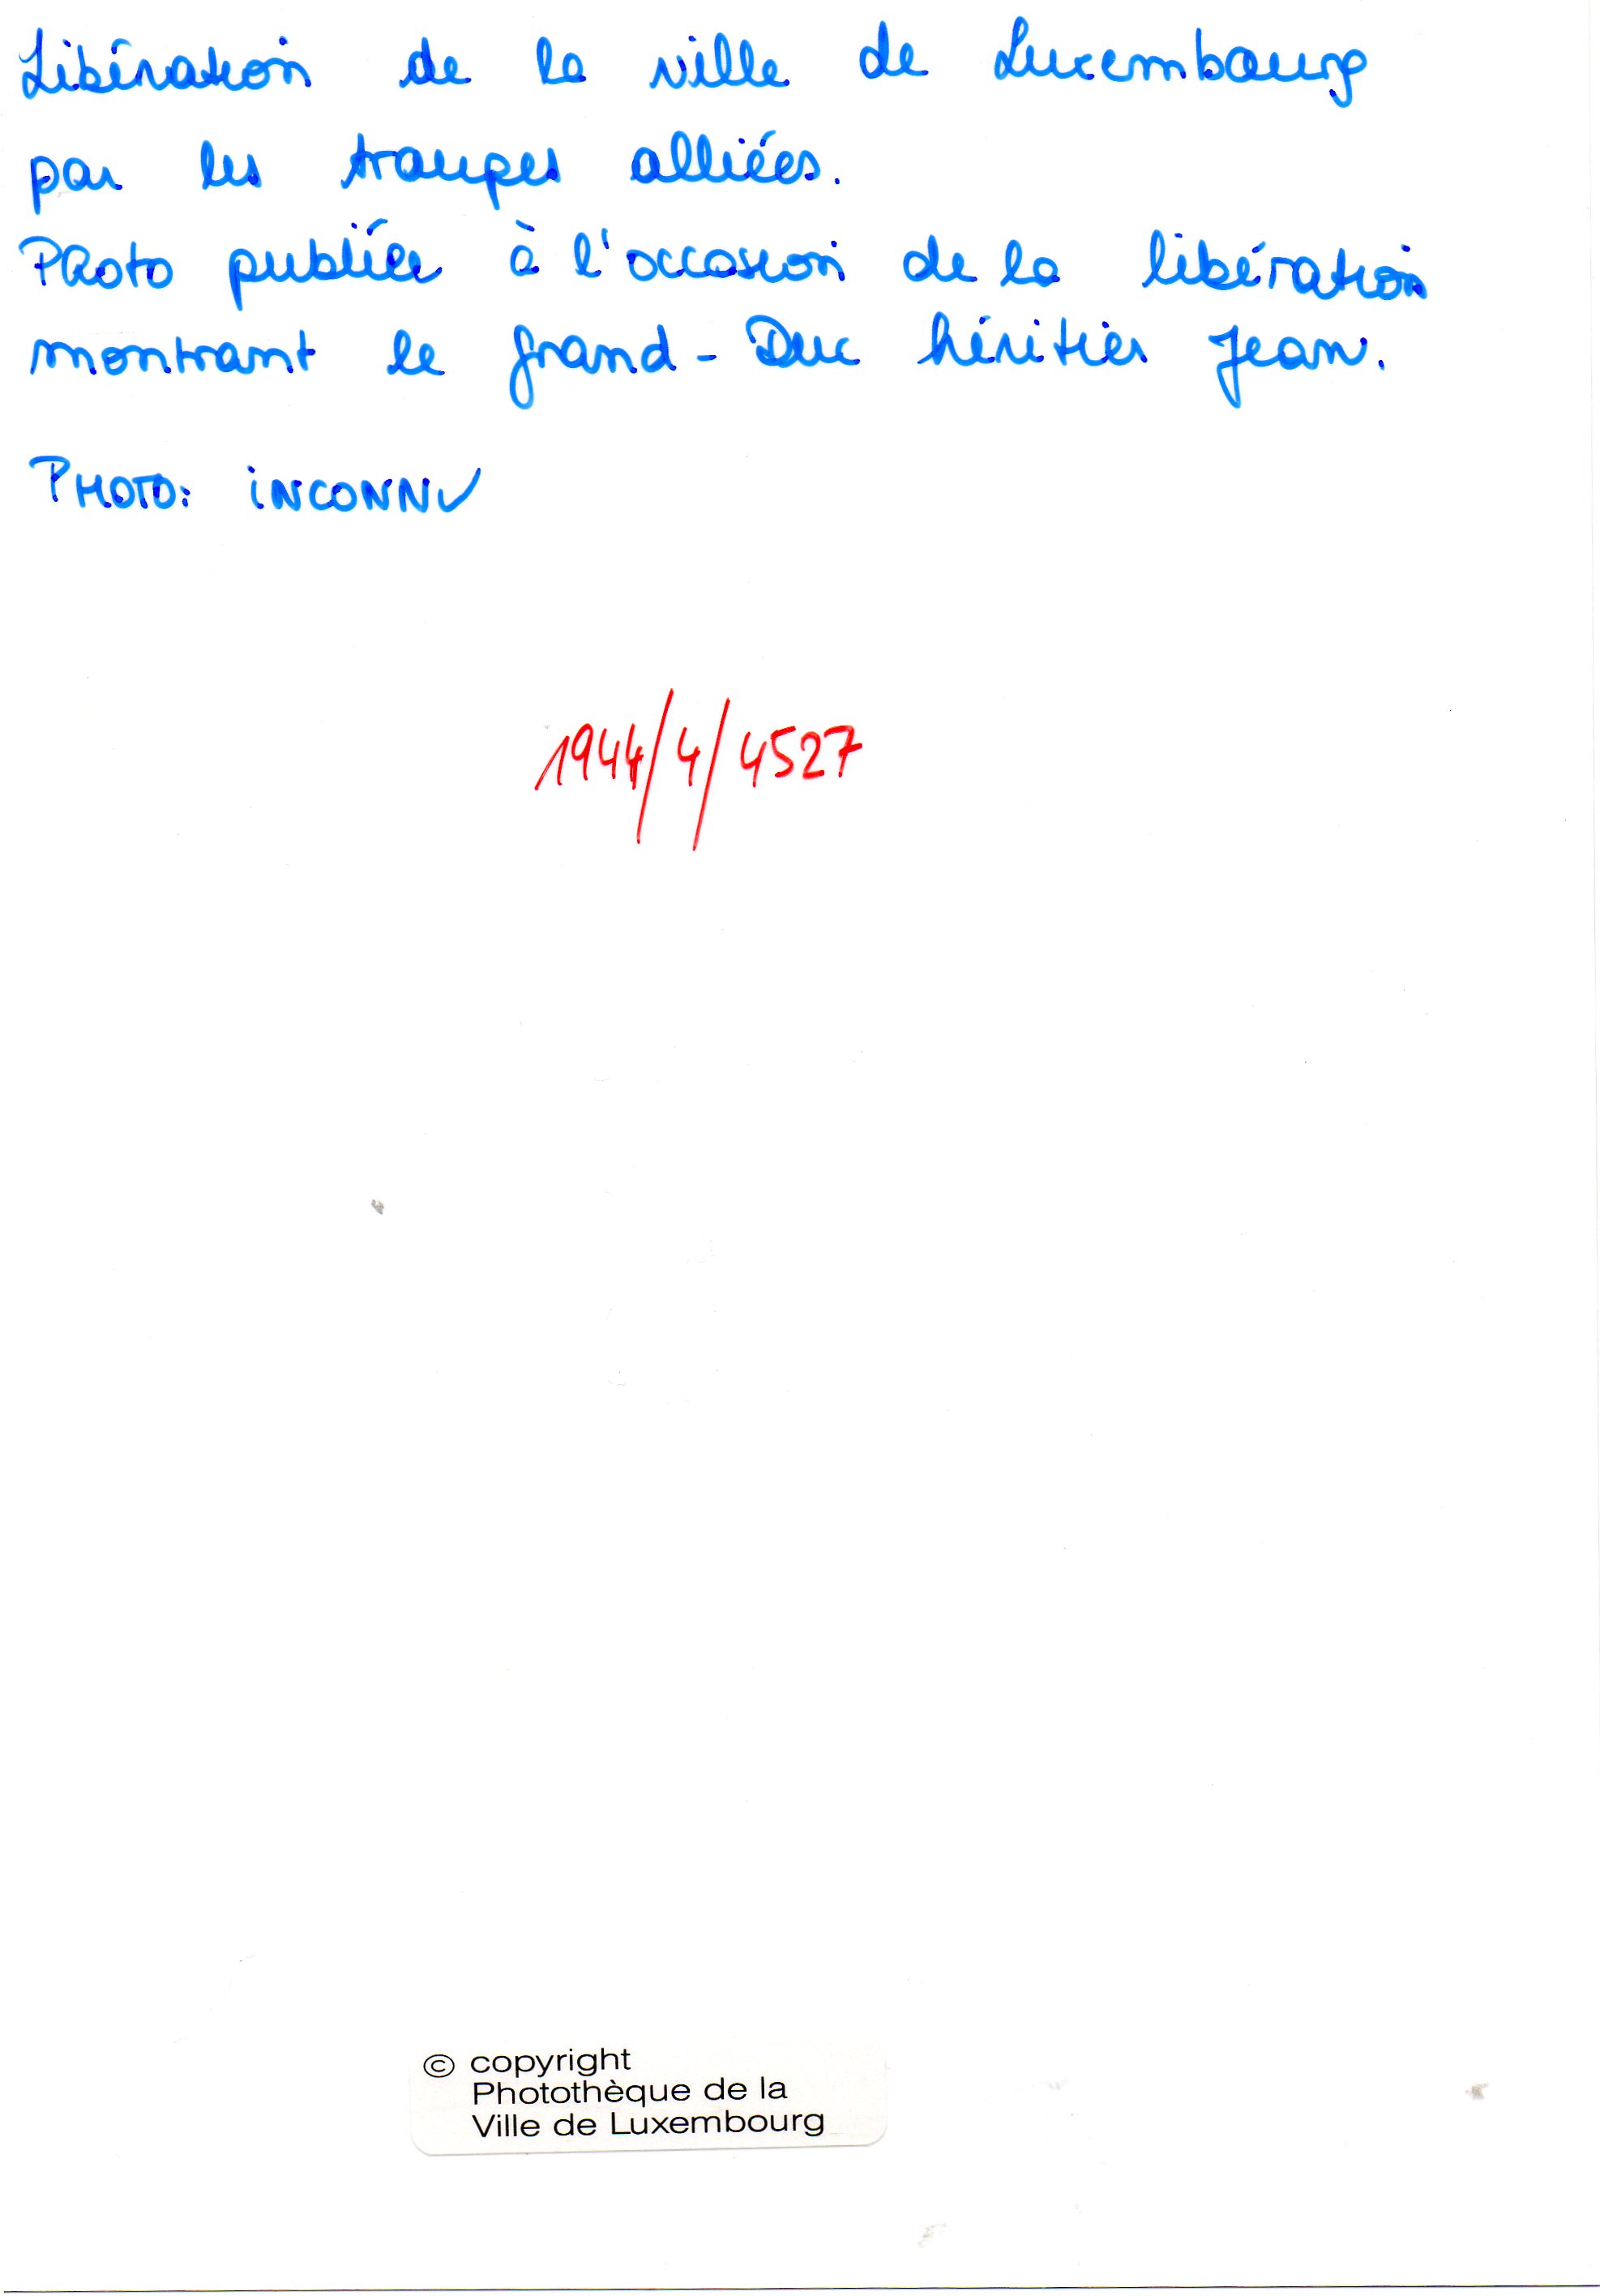 Libération de la ville de Luxembourg
par les troupes alliées.
Photo publiée à l'occasion de la libération
montrant le grand-Duc héritier Jean.
PHOTO: iNCONNU
1944/4/4527
© copyright
Photothèque de la
Ville de Luxembourg